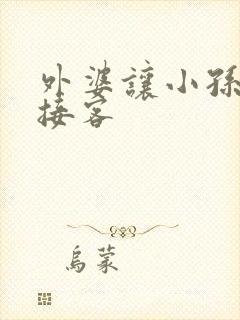 外婆讓小孫
接客
烏蒙